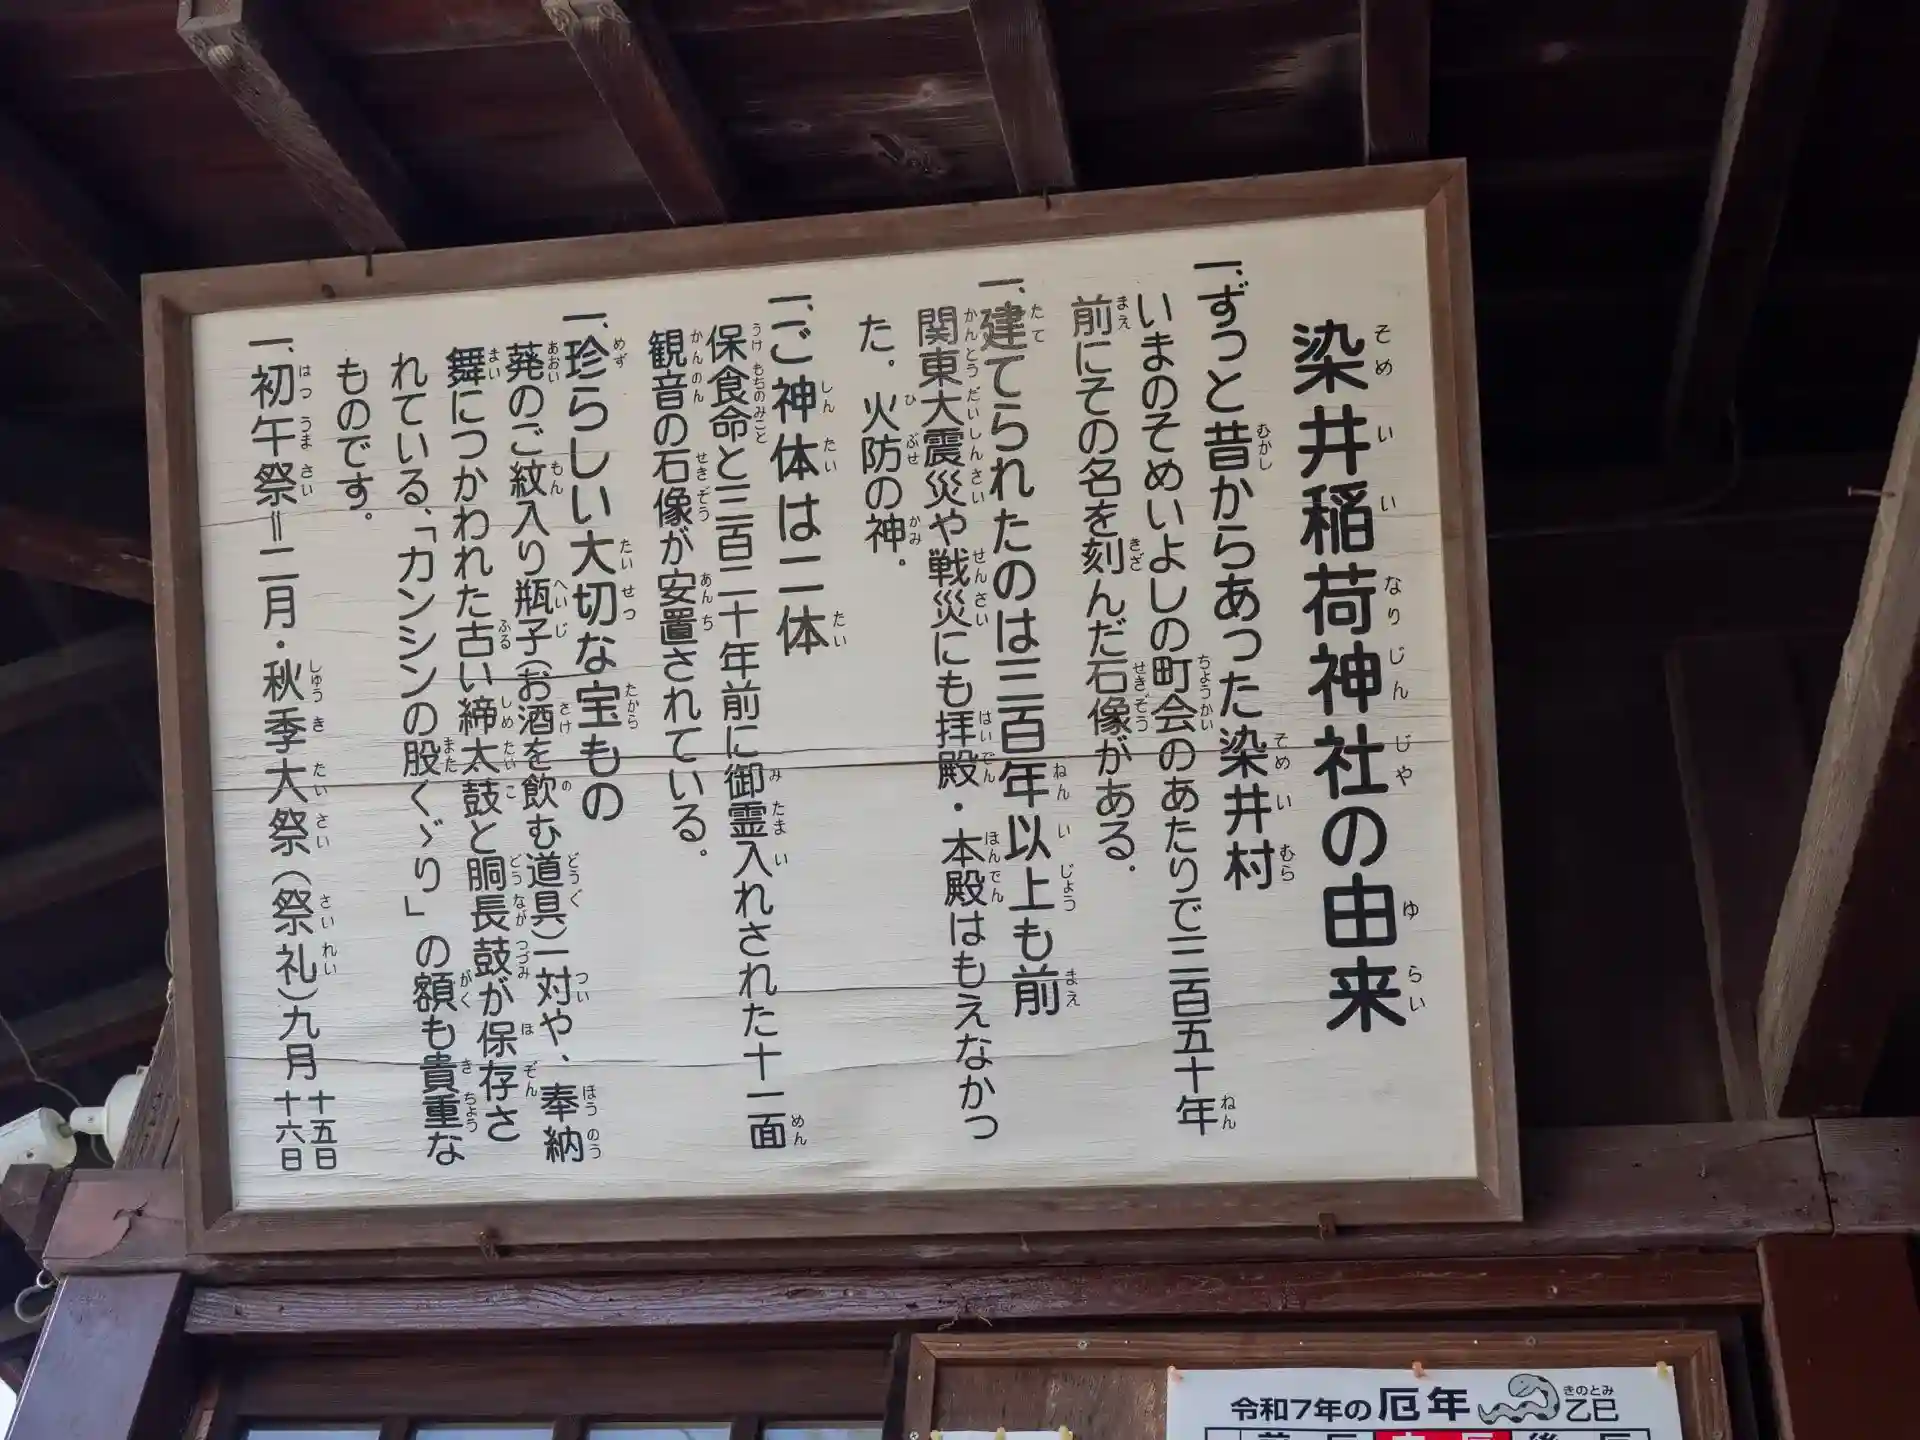 染井稲荷神社の由来
一、ずっと昔からあった染井村
いまのそめいよしの町会のあたりで三百五十年
前にその名を刻んだ石像がある．
一、建てられたのは三百年以上も前
関東大震災や戦災にも拝殿・本殿はもえなかっ
た．火防の神．
一、ご神体は二体
保食命と三百二十年前に御霊入れされた十一面
観音の石像が安置されている。
一、珍らしい大切な宝もの
葵のご紋入り瓶子(お酒を飲む道具)一対や、奉納
舞につかわれた古い締太鼓と胴長鼓が保存さ
れている、「カンシンの股くゞり」の額も貴重な
ものです。
一、初午祭＝二月・秋季大祭(祭礼)九月 十五日 十六日
令和7年の厄年 乙巳